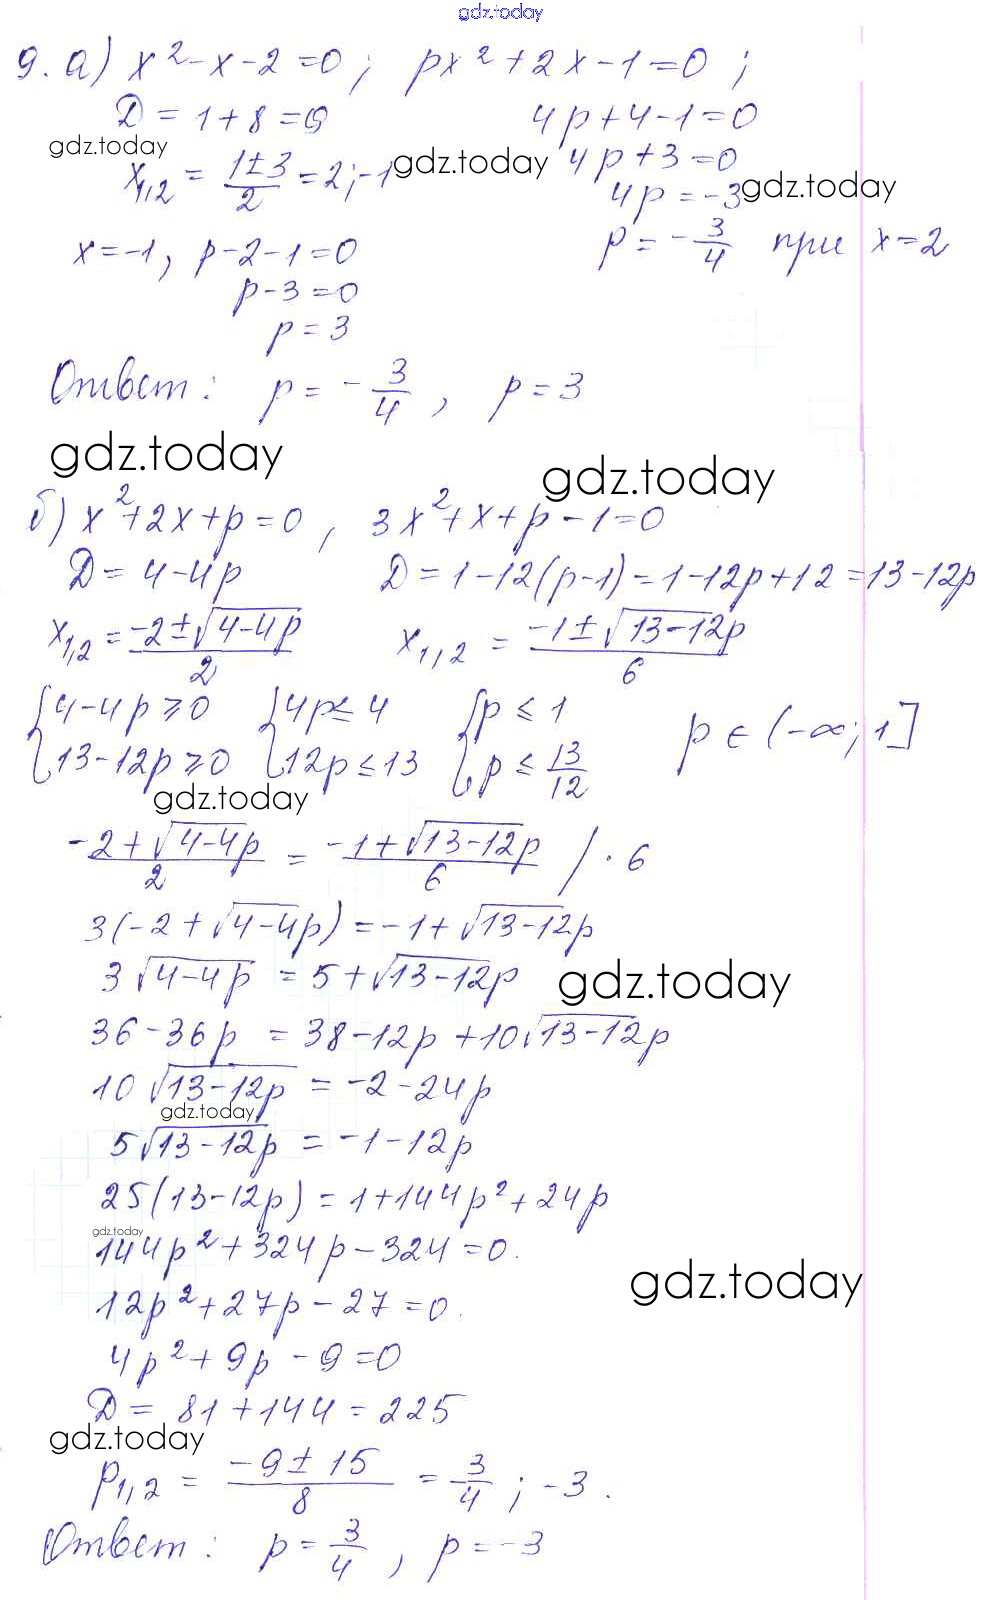 gdz.today
9. а) x² - x - 2 = 0 ; px² + 2x - 1 = 0 ;
Д = 1 + 8 = 9 4p + 4 - 1 = 0
gdz.today gdz.today 4p + 3 = 0
x₁,₂ = (1 ± 3)/2 = 2; -1 4p = -3 gdz.today
x = -1, p - 2 - 1 = 0 p = - 3/4 при x = 2
p - 3 = 0
p = 3
Ответ: p = - 3/4 , p = 3
gdz.today gdz.today
б) x² + 2x + p = 0 , 3x² + x + p - 1 = 0
Д = 4 - 4p Д = 1 - 12(p - 1) = 1 - 12p + 12 = 13 - 12p
x₁,₂ = (-2 ± √(4 - 4p))/2 x₁,₂ = (-1 ± √(13 - 12p))/6
{4 - 4p ≥ 0 {4p ≤ 4 {p ≤ 1 p ∈ (-∞; 1]
{13 - 12p ≥ 0 {12p ≤ 13 {p ≤ 13/12
gdz.today
(-2 + √(4 - 4p))/2 = (-1 + √(13 - 12p))/6 / · 6
3(-2 + √(4 - 4p)) = -1 + √(13 - 12p)
3√(4 - 4p) = 5 + √(13 - 12p) gdz.today
36 - 36p = 38 - 12p + 10√(13 - 12p)
10√(13 - 12p) = -2 - 24p
gdz.today
5√(13 - 12p) = -1 - 12p
25(13 - 12p) = 1 + 144p² + 24p
gdz.today
144p² + 324p - 324 = 0.
gdz.today
12p² + 27p - 27 = 0.
4p² + 9p - 9 = 0
Д = 81 + 144 = 225
gdz.today
p₁,₂ = (-9 ± 15)/8 = 3/4 ; -3 .
Ответ: p = 3/4 , p = -3